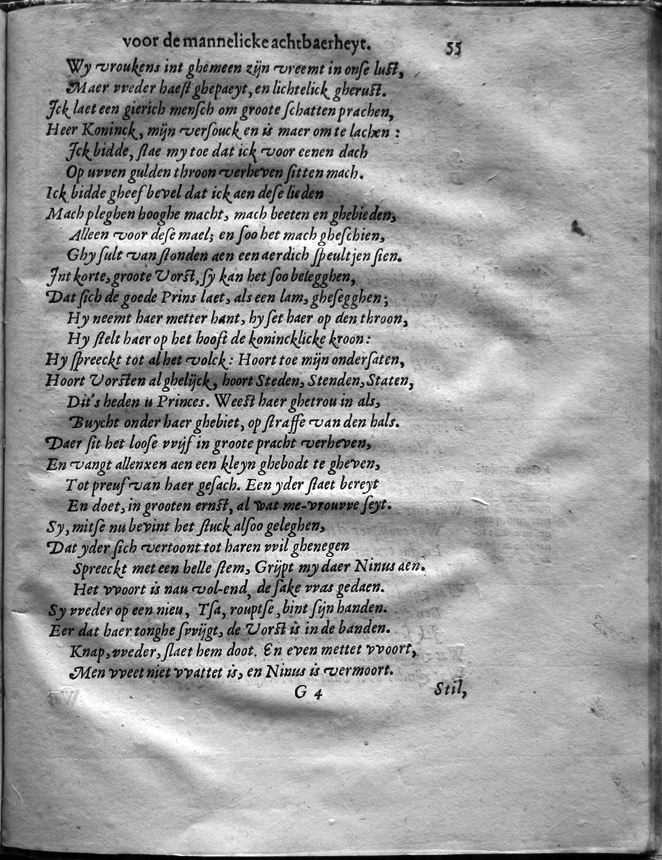 voor de mannelicke achtbaerheyt. 55
Wy vroukens int ghemeen zijn vreemt in onse lust,
Maer vveder haest ghepaeyt, en lichtelick gherust.
Ick laet een gierich mensch om groote schatten prachen,
Heer Koninck, mijn versouck en is maer om te lachen:
Ick bidde, stae my toe dat ick voor eenen dach
Op uvven gulden throon verheven sitten mach.
Ick bidde gheef bevel dat ick aen dese lieden
Mach pleghen hooghe macht, mach heeten en ghebieden,
Alleen voor dese mael; en soo het mach gheschien,
Ghy sult van stonden aen een aerdich speultjen sien.
Int korte, groote Vorst, sy kan het soo belegghen,
Dat sich de goede Prins laet, als een lam, ghesegghen;
Hy neemt haer metter hant, hy set haer op den throon,
Hy stelt haer op het hooft de konincklicke kroon:
Hy spreeckt tot al het volck: Hoort toe mijn ondersaten,
Hoort Vorsten al ghelijck, hoort Steden, Stenden, Staten,
Dit's heden u Princes. Weest haer ghetrou in als,
Buycht onder haer ghebiet, op straffe van den hals.
Daer sit het loose vvijf in groote pracht verheven,
En vangt allenxen aen een kleyn ghebodt te gheven,
Tot preuf van haer gesach. Een yder staet bereyt
En doet, in grooten ernst, al wat me-vrouvve seyt.
Sy, mitse nu bevint het stuck alsoo geleghen,
Dat yder sich vertoont tot haren vvil ghenegen
Spreeckt met een helle stem, Grijpt my daer Ninus aen.
Het vvoort is nau vol-end, de sake vvas gedaen.
Sy vveder op een nieu, Tsa, rouptse, bint sijn handen.
Eer dat haer tonghe svvijgt, de Vorst is in de banden.
Knap, vveder, slaet hem doot. En even mettet vvoort,
Men vveet niet vvattet is, en Ninus is vermoort.
G 4 Stil,